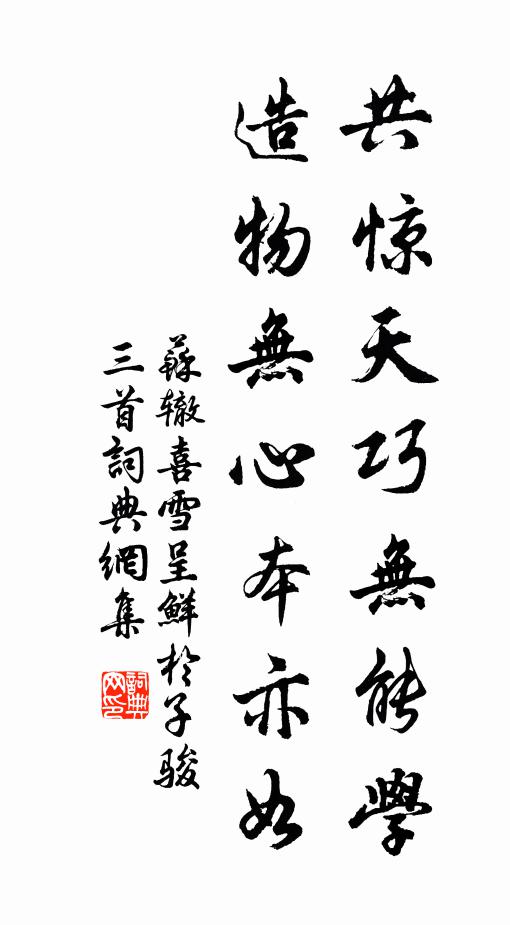 共惊天巧無能學
造物無心本亦如
蘇辙喜雪呈鮮於子骏
三首詞典網集
詞典网印